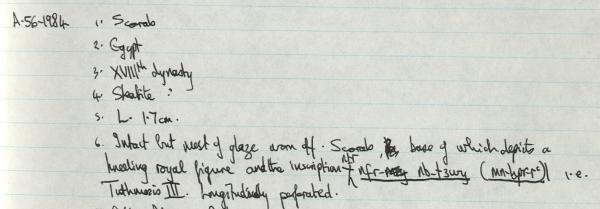 A.56-1984 1. Scarab
2. Egypt
3. XVIIIth dynasty
4. Steatite ?
5. L. 1.7cm.
6. Intact but most of glaze worn off. Scarab, base of which depicts a
kneeling royal figure and the inscription nṯr
nfr nb-t3wy (mn-ḫpr-rˁ) i.e.
Tuthmosis III. Longitudinally perforated.